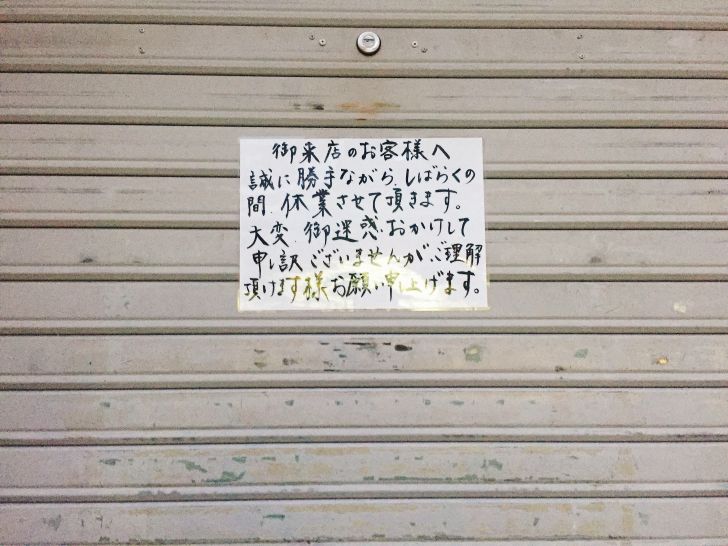 御来店のお客様へ
誠に勝手ながら、しばらくの
間、休業させて頂きます。
大変、御迷惑、おかけして
申し訳ございませんが、ご理解
頂けます様お願い申上げます。